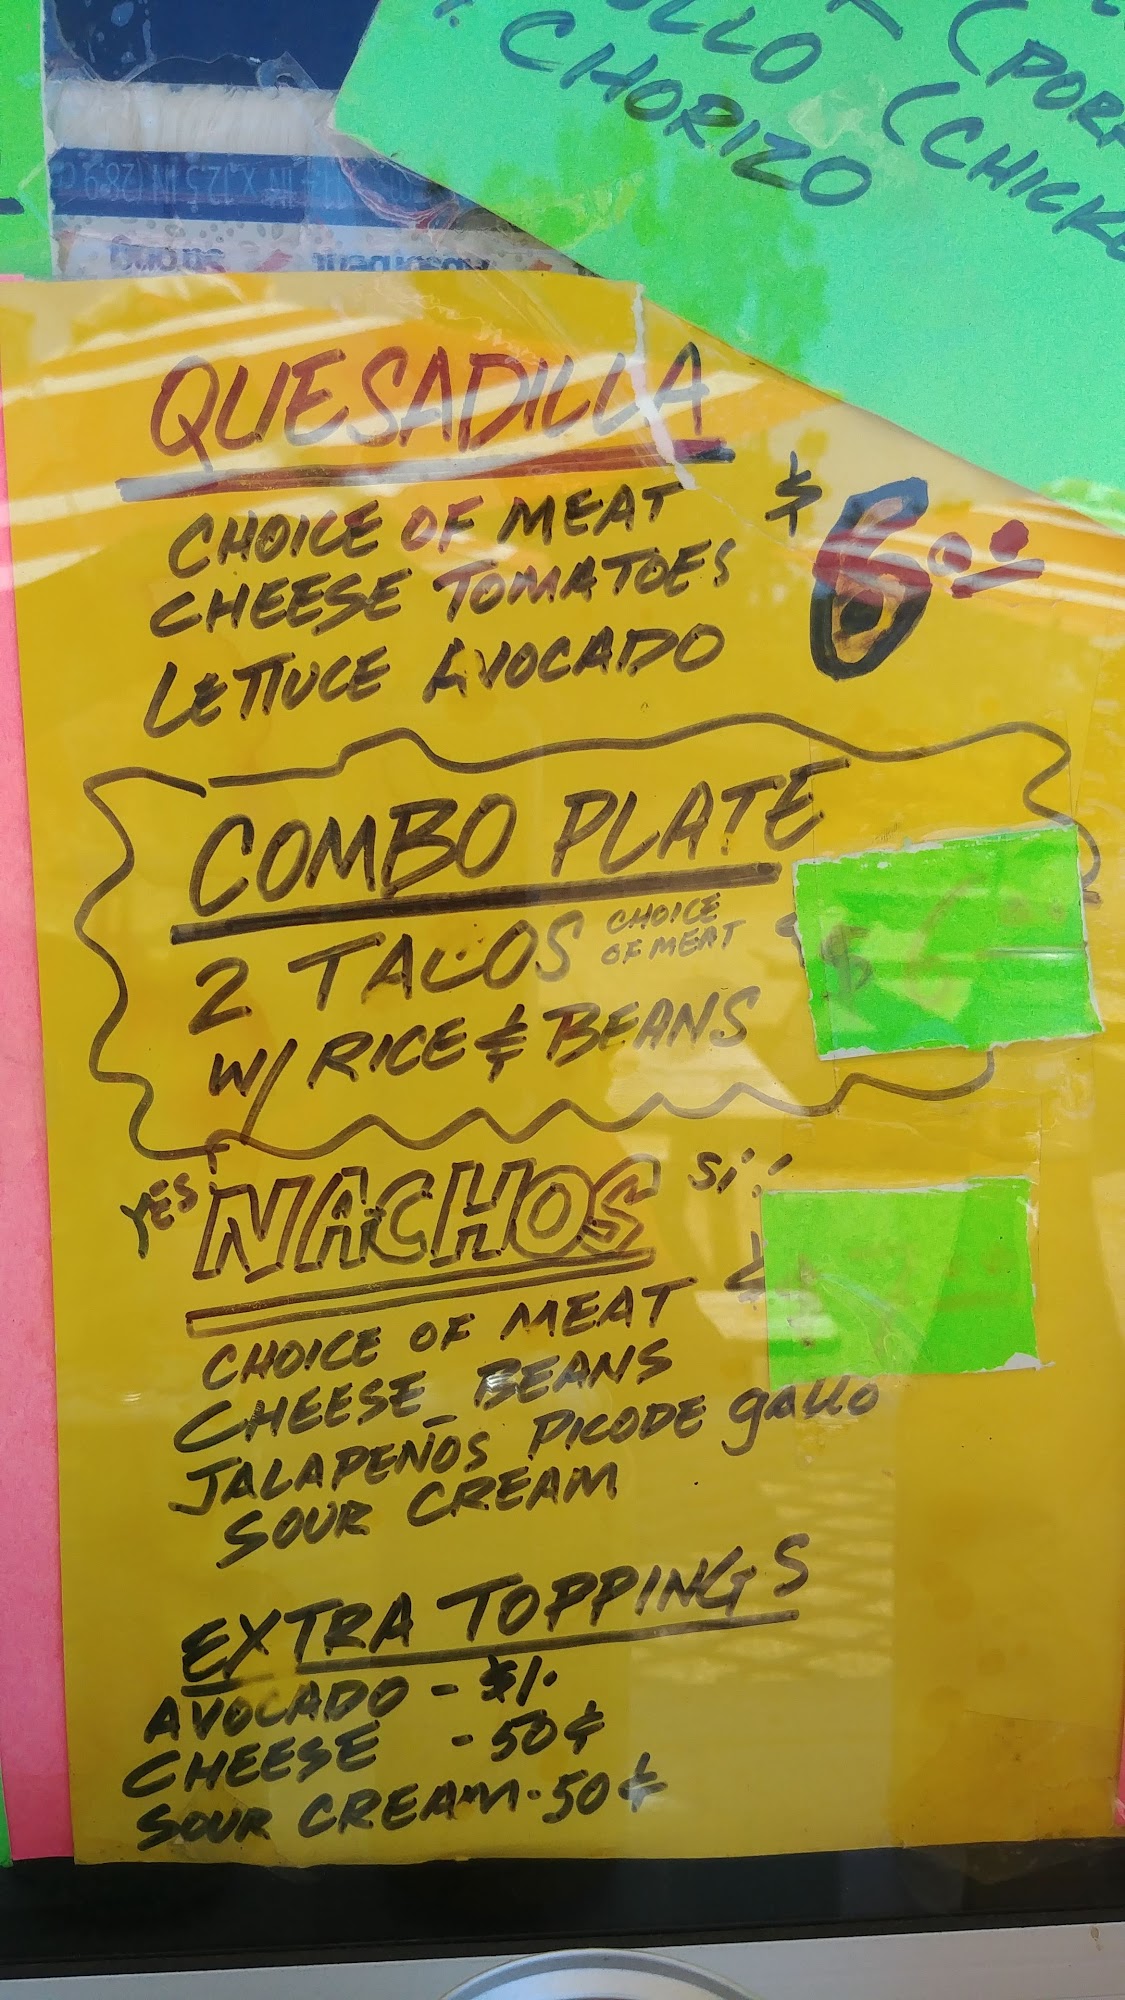 CHORIZO
QUESADILLA
CHOICE OF MEAT
CHEESE TOMATOES
LETTUCE AVOCADO
$6.00
COMBO PLATE
2 TACOS CHOICE OF MEAT
W/ RICE & BEANS
$
YES NACHOS Si!!
CHOICE OF MEAT
CHEESE_BEANS
JALAPEÑOS PICODE gallo
SOUR CREAM
EXTRA TOPPINGS
AVOCADO - $1.
CHEESE - 50¢
SOUR CREAM - 50¢